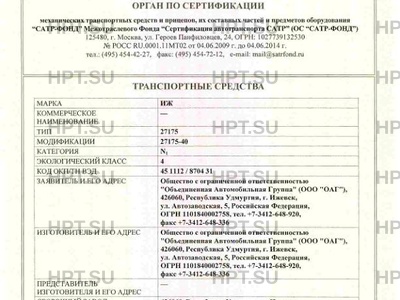 ОРГАН ПО СЕРТИФИКАЦИИ
механических транспортных средств и прицепов, их составных частей и предметов оборудования
"САТР-ФОНД" Межотраслевого Фонда "Сертификация автотранспорта САТР" (ОС "САТР-ФОНД")
125480, г. Москва, ул. Героев Панфиловцев, 24, ОГРН: 1027739132530
№ РОСС RU.0001.11МТ02 от 04.06.2009 г. до 04.06.2014 г.
тел.: (495) 454-42-27, факс: (495) 454-72-12, e-mail: mail@satrfond.ru
HPT.SU HPT.SU
ТРАНСПОРТНЫЕ СРЕДСТВА
МАРКА ИЖ
КОММЕРЧЕСКОЕ —
НАИМЕНОВАНИЕ
ТИП 27175
МОДИФИКАЦИИ 27175-40
КАТЕГОРИЯ N₁
ЭКОЛОГИЧЕСКИЙ КЛАСС 4
КОД ОКП/ТН ВЭД 45 1112 / 8704 31
ЗАЯВИТЕЛЬ И ЕГО АДРЕС Общество с ограниченной ответственностью
"Объединенная Автомобильная Группа" (ООО "ОАГ"),
426060, Республика Удмуртия, г. Ижевск,
ул. Автозаводская, 5, Российская Федерация,
ОГРН 1101840002758, тел. +7-3412-648-920,
факс +7-3412-648-336
ИЗГОТОВИТЕЛЬ И ЕГО АДРЕС Общество с ограниченной ответственностью
"Объединенная Автомобильная Группа" (ООО "ОАГ"),
426060, Республика Удмуртия, г. Ижевск,
ул. Автозаводская, 5, Российская Федерация,
ОГРН 1101840002758, тел. +7-3412-648-920,
факс +7-3412-648-336
ПРЕДСТАВИТЕЛЬ —
ИЗГОТОВИТЕЛЯ И ЕГО АДРЕС